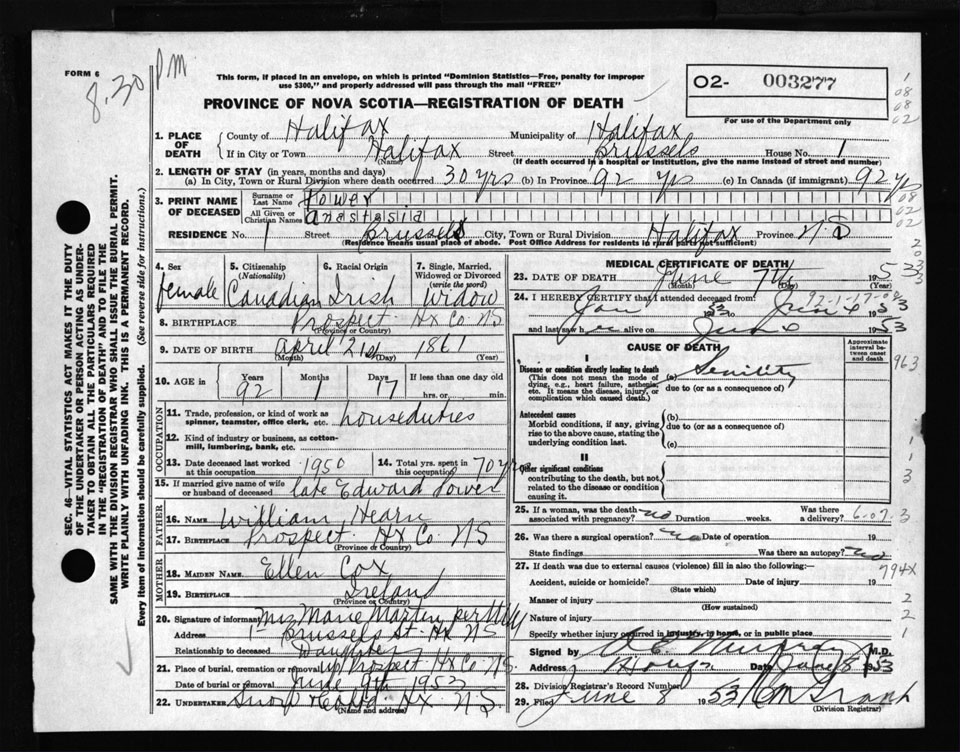 FORM 6
8.30 PM
This form, if placed in an envelope, on which is printed "Dominion Statistics—Free, penalty for improper
use $300," and properly addressed will pass through the mail "FREE"
O2- 003277
For use of the Department only
PROVINCE OF NOVA SCOTIA—REGISTRATION OF DEATH
1. PLACE OF DEATH
County of Halifax Municipality of Halifax
If in City or Town Halifax Street Brussels House No. 1
(Name) (If death occurred in a hospital or institution, give the name instead of street and number)
2. LENGTH OF STAY (in years, months and days)
(a) In City, Town or Rural Division where death occurred 30 yrs (b) In Province 92 yrs (c) In Canada (if immigrant) 92 yrs
3. PRINT NAME OF DECEASED
Surname or Last Name Power
All Given or Christian Names Anastasia
RESIDENCE No. 1 Street Brussels City, Town or Rural Division Halifax Province N.S
(Residence means usual place of abode. Post Office Address for residents in rural parts not sufficient)
4. Sex female
5. Citizenship (Nationality) Canadian
6. Racial Origin Irish
7. Single, Married, Widowed or Divorced (write the word) Widow
8. BIRTHPLACE Prospect Hx Co NS
(Province or Country)
9. DATE OF BIRTH April 21st 1861
(Month) (Day) (Year)
10. AGE in Years 92 Months 1 Days 17 If less than one day old
hrs. or min.
OCCUPATION
11. Trade, profession, or kind of work as spinner, teamster, office clerk, etc. houseduties
12. Kind of industry or business, as cotton-mill, lumbering, bank, etc.
13. Date deceased last worked at this occupation 1950
14. Total yrs. spent in this occupation 70 yrs
15. If married give name of wife or husband of deceased late Edward Power
FATHER
16. NAME William Hearn
17. BIRTHPLACE Prospect Hx Co NS
(Province or Country)
MOTHER
18. MAIDEN NAME Ellen Cox
19. BIRTHPLACE Ireland
(Province or Country)
20. Signature of informant Mrs Marie Martin per
Address 1 Brussels St Hx NS
Relationship to deceased Daughter
21. Place of burial, cremation or removal Prospect Hx Co NS
Date of burial or removal June 9th 1953
22. UNDERTAKER Snow Hx N.S.
(Name and address)
MEDICAL CERTIFICATE OF DEATH
23. DATE OF DEATH June 7th 1953
(Month) (Day) (Year)
24. I HEREBY CERTIFY that I attended deceased from
Jan 1953 to June 1953
92-1-17-08
and last saw h er alive on June 1953
CAUSE OF DEATH
Approximate interval between onset and death
I
Disease or condition directly leading to death
(This does not mean the mode of dying, e.g., heart failure, asthenia, etc. It means the disease, injury, or complication which caused death.)
(a) Senility
due to (or as a consequence of)
Antecedent causes
Morbid conditions, if any, giving rise to the above cause, stating the underlying condition last.
(b)
due to (or as a consequence of)
(c)
II
Other significant conditions
contributing to the death, but not related to the disease or condition causing it.
25. If a woman, was the death associated with pregnancy? no Duration weeks. Was there a delivery?
6-07.3
26. Was there a surgical operation? no Date of operation 19
State findings Was there an autopsy? no
27. If death was due to external causes (violence) fill in also the following:
794X
Accident, suicide or homicide? Date of injury 19
(State which)
Manner of injury
(How sustained)
Nature of injury
Specify whether injury occurred in industry, in home, or in public place
Signed by Murphy M.D.
Address Date June 8 1953
28. Division Registrar's Record Number
29. Filed June 8 1953
(Division Registrar)
SEC. 46—VITAL STATISTICS ACT MAKES IT THE DUTY
OF THE UNDERTAKER OR PERSON ACTING AS UNDER-
TAKER TO OBTAIN ALL THE PARTICULARS REQUIRED
IN THE "REGISTRATION OF DEATH" AND TO FILE THE
SAME WITH THE DIVISION REGISTRAR WHO SHALL ISSUE THE BURIAL PERMIT.
WRITE PLAINLY WITH UNFADING INK. THIS IS A PERMANENT RECORD.
Every item of information should be carefully supplied. (See reverse side for instructions.)